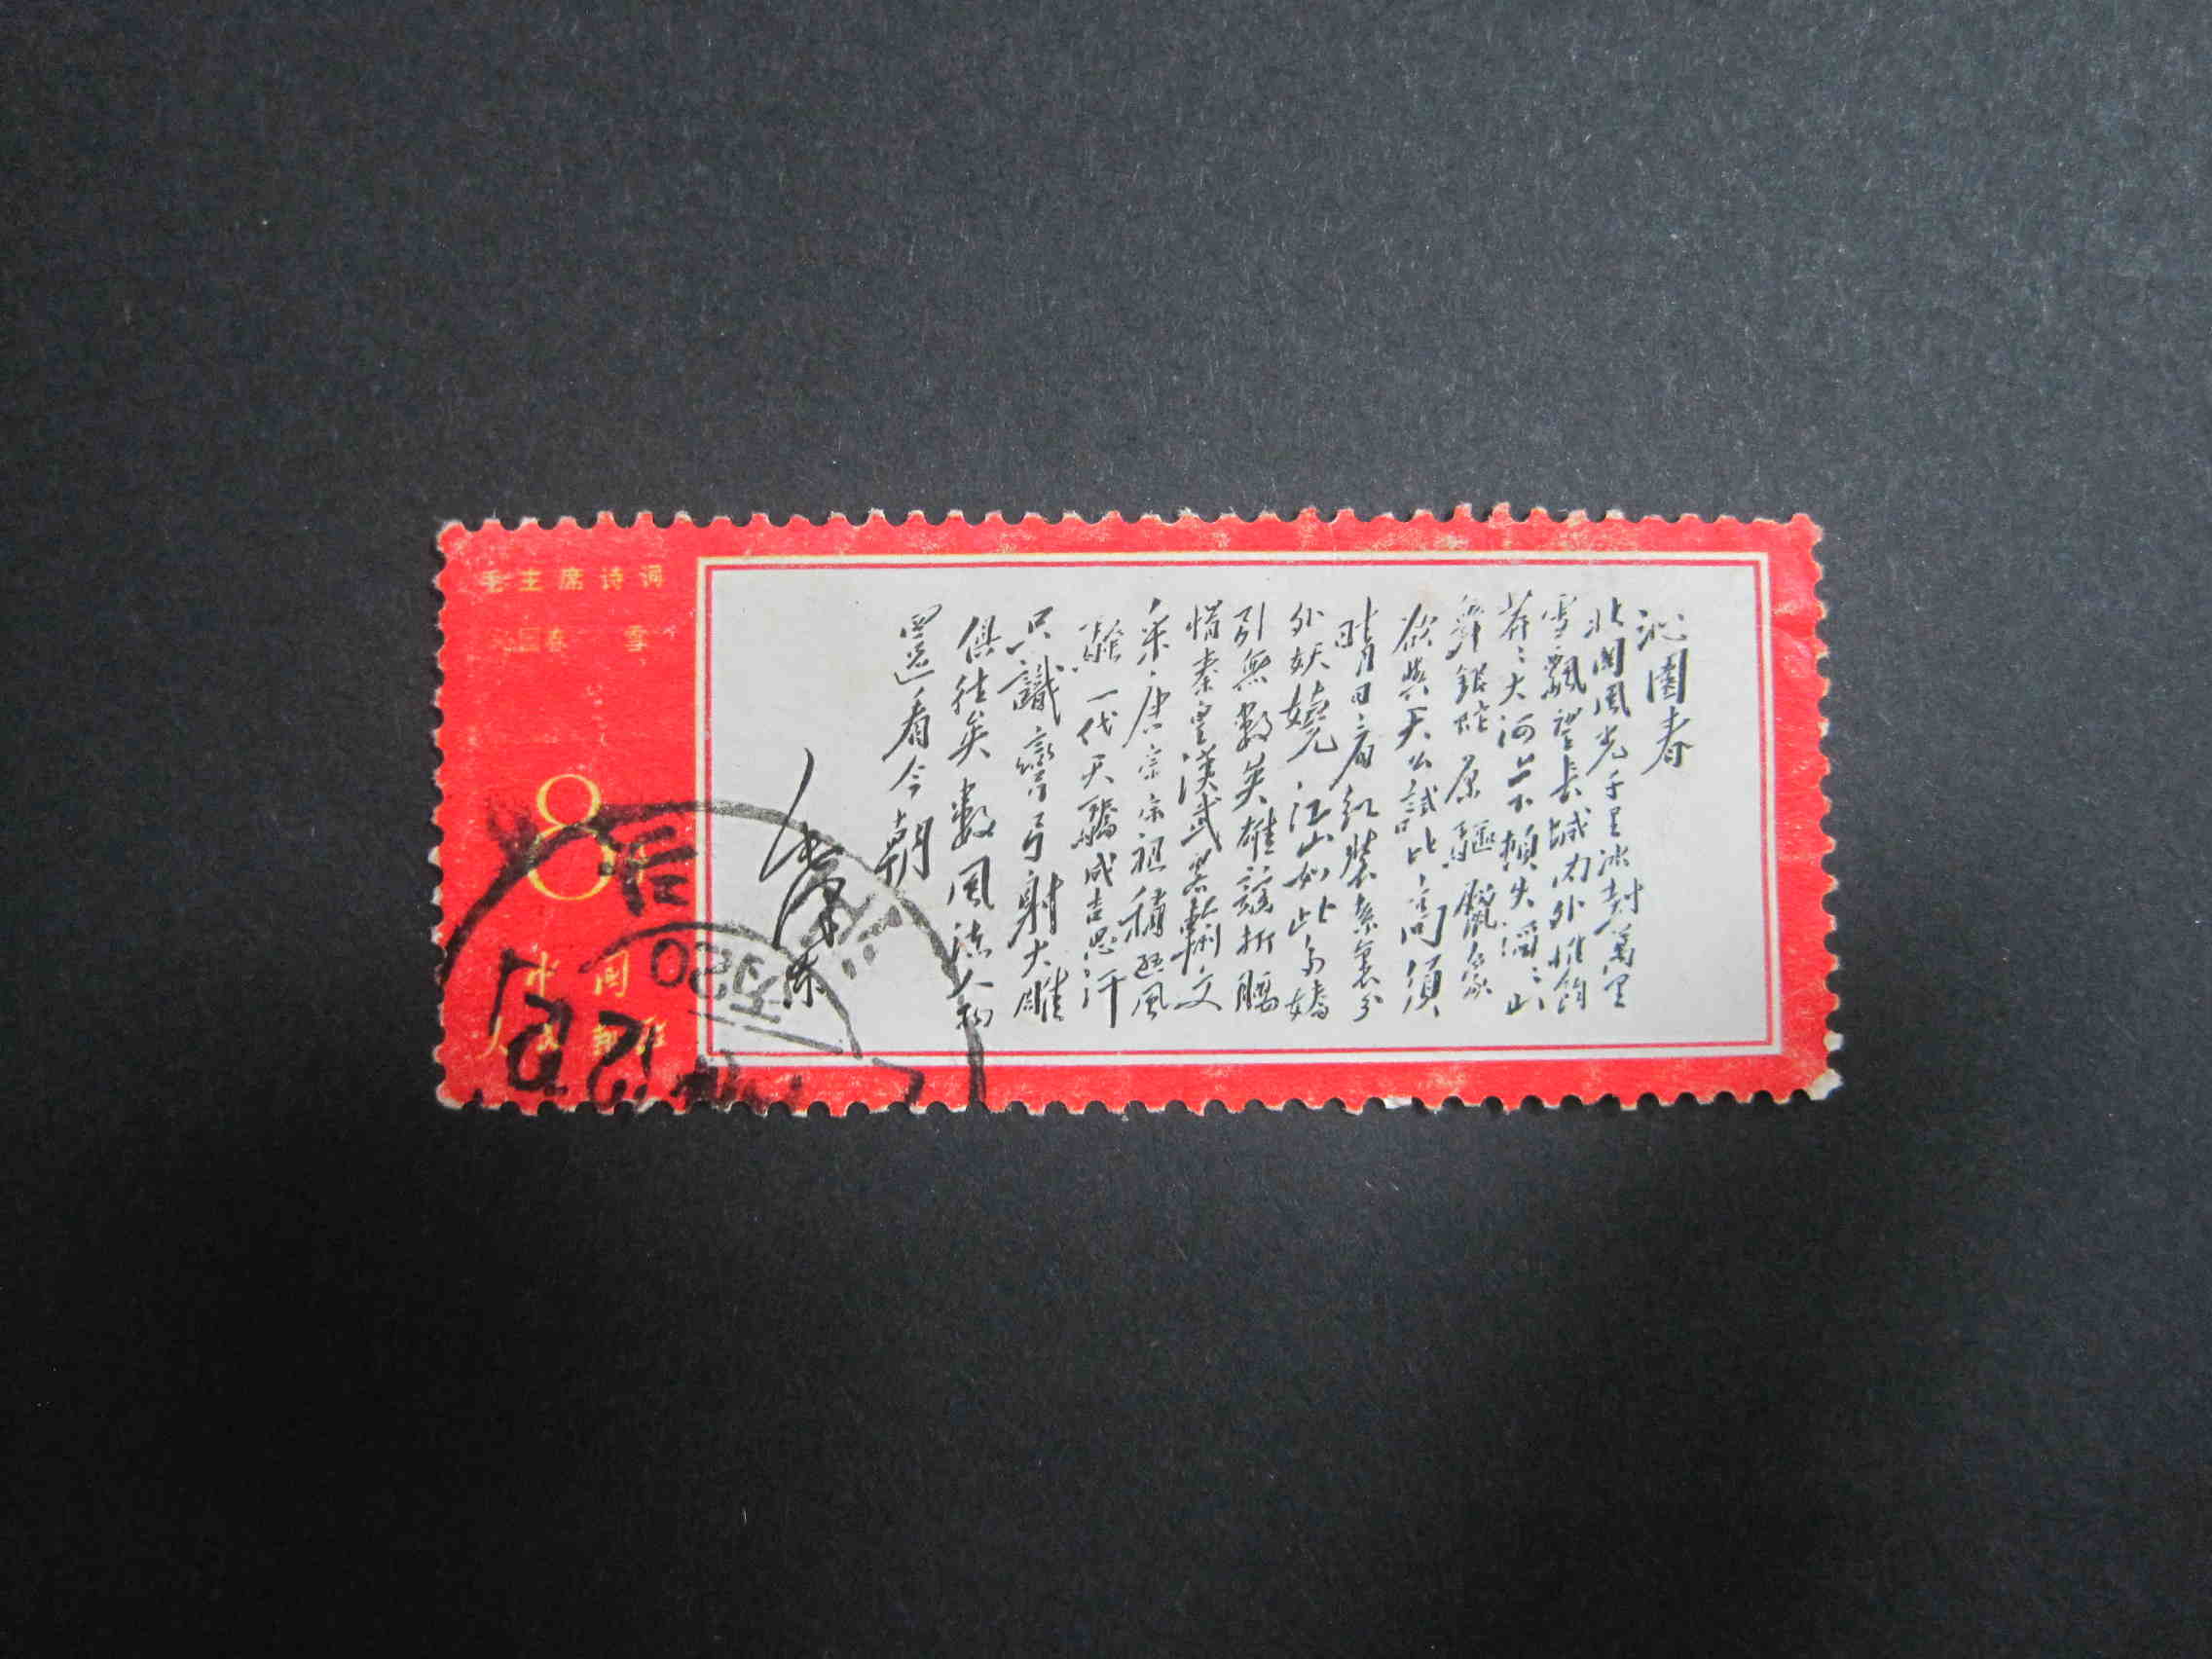 毛主席诗词
沁园春 雪
8
中国
人民邮政
沁園春
北国風光千里冰封萬里
雪飄望長城内外惟餘
莽〻大河上下頓失滔〻山
舞銀蛇原驅臘象
欲與天公試比高須
晴日看紅裝素裹分
外妖嬈江山如此多嬌
引無數英雄競折腰
惜秦皇漢武略輸文
采唐宗宋祖稍遜風
騷一代天驕成吉思汗
只識彎弓射大雕
俱往矣數風流人物
還看今朝
毛澤东